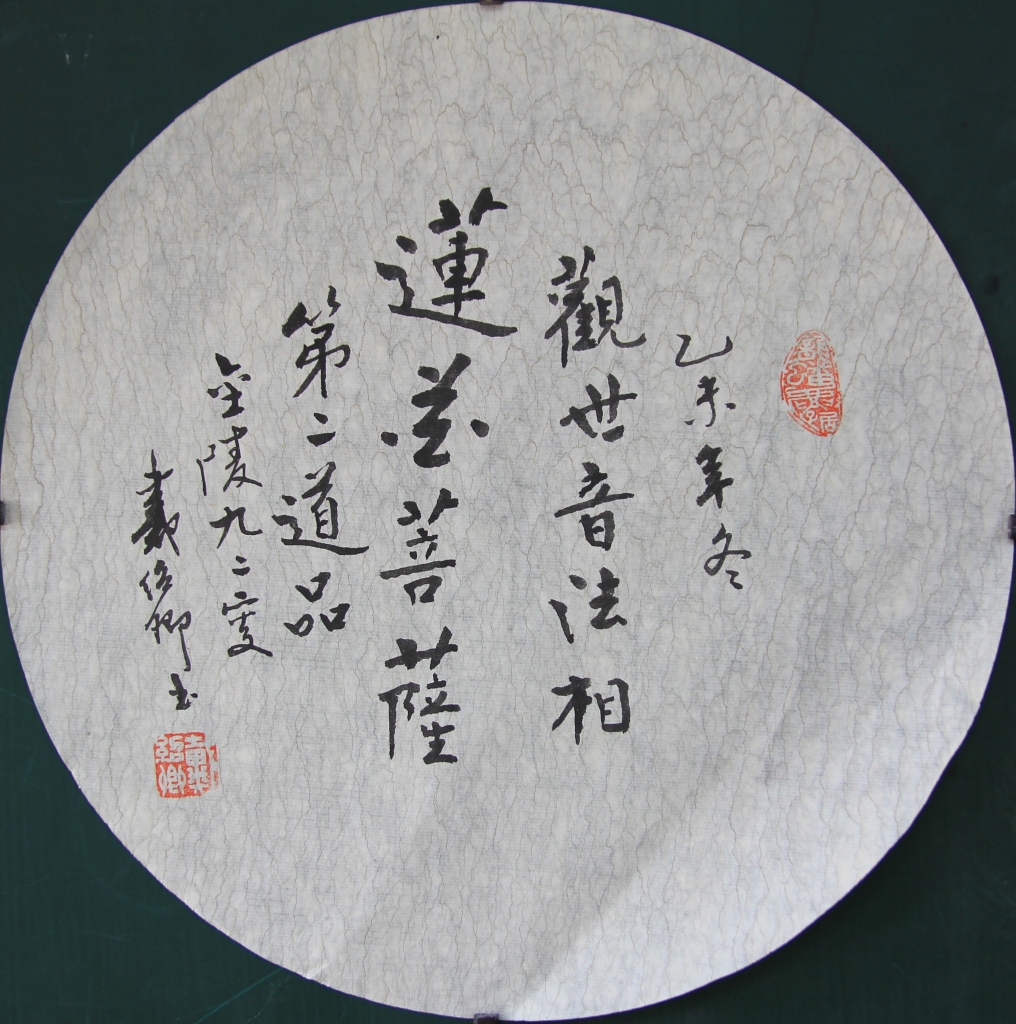 乙未年冬
觀世音法相
蓮花菩薩
第二道品
金陵九二叟
戴紹卿書
戴紹卿